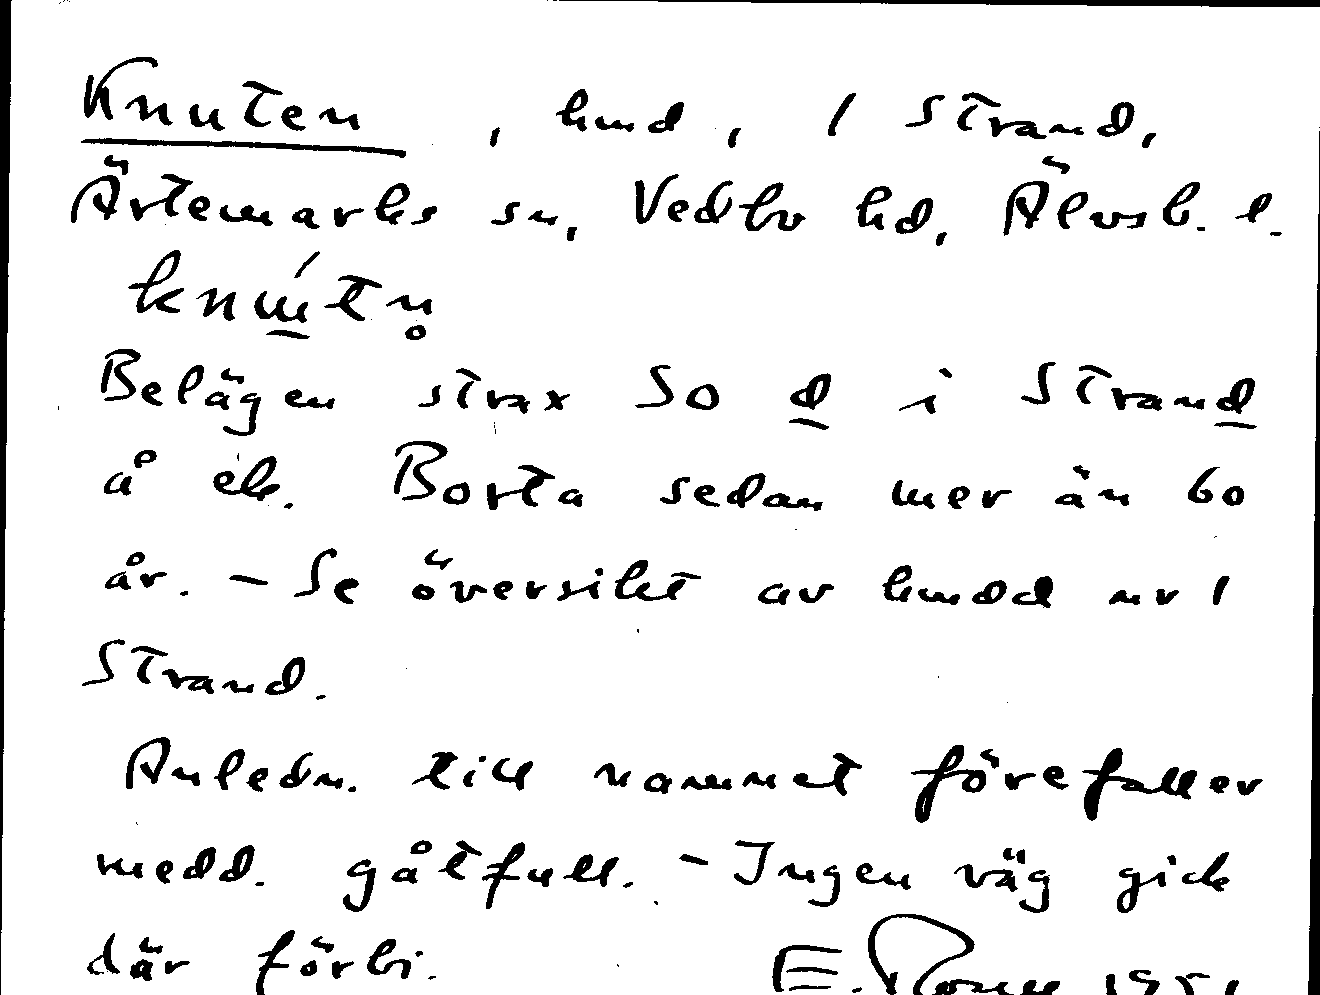 Knuten, hmd, 1 Strand,
Ärtemarks sn, Vedbo hd, Älvsb. l.
Belägen strax SO d i Strand
å ek. Borta sedan mer än 60
år. - Se översikt av hmdd nr 1
Strand.
Anledn. till namnet förefaller
medd. gåtfull. - Ingen väg gick
där förbi. E.